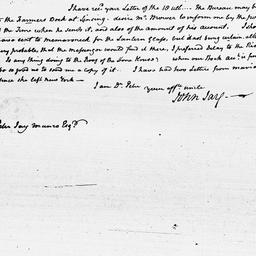 I have recd. your Letter of the 10 ult.... The Bureau may be
to the Farmers Dock at Sinsing. desire Mr. Brower to inform me by the
the Time when he sends it, and also of the amount of his account.
sent to mamaroneck for the Lantern Glass, but it not being certain,
very probable, that the messenger would find it there, I preferred Delay to the
Is any thing doing to the Roof of the Town House? when our Book
so good as to send me a copy of it.. I have had two Letters from maria
since she left New York—
I am Dr. Peter your afft. uncle
John Jay—
Peter Jay Munro Esqr.